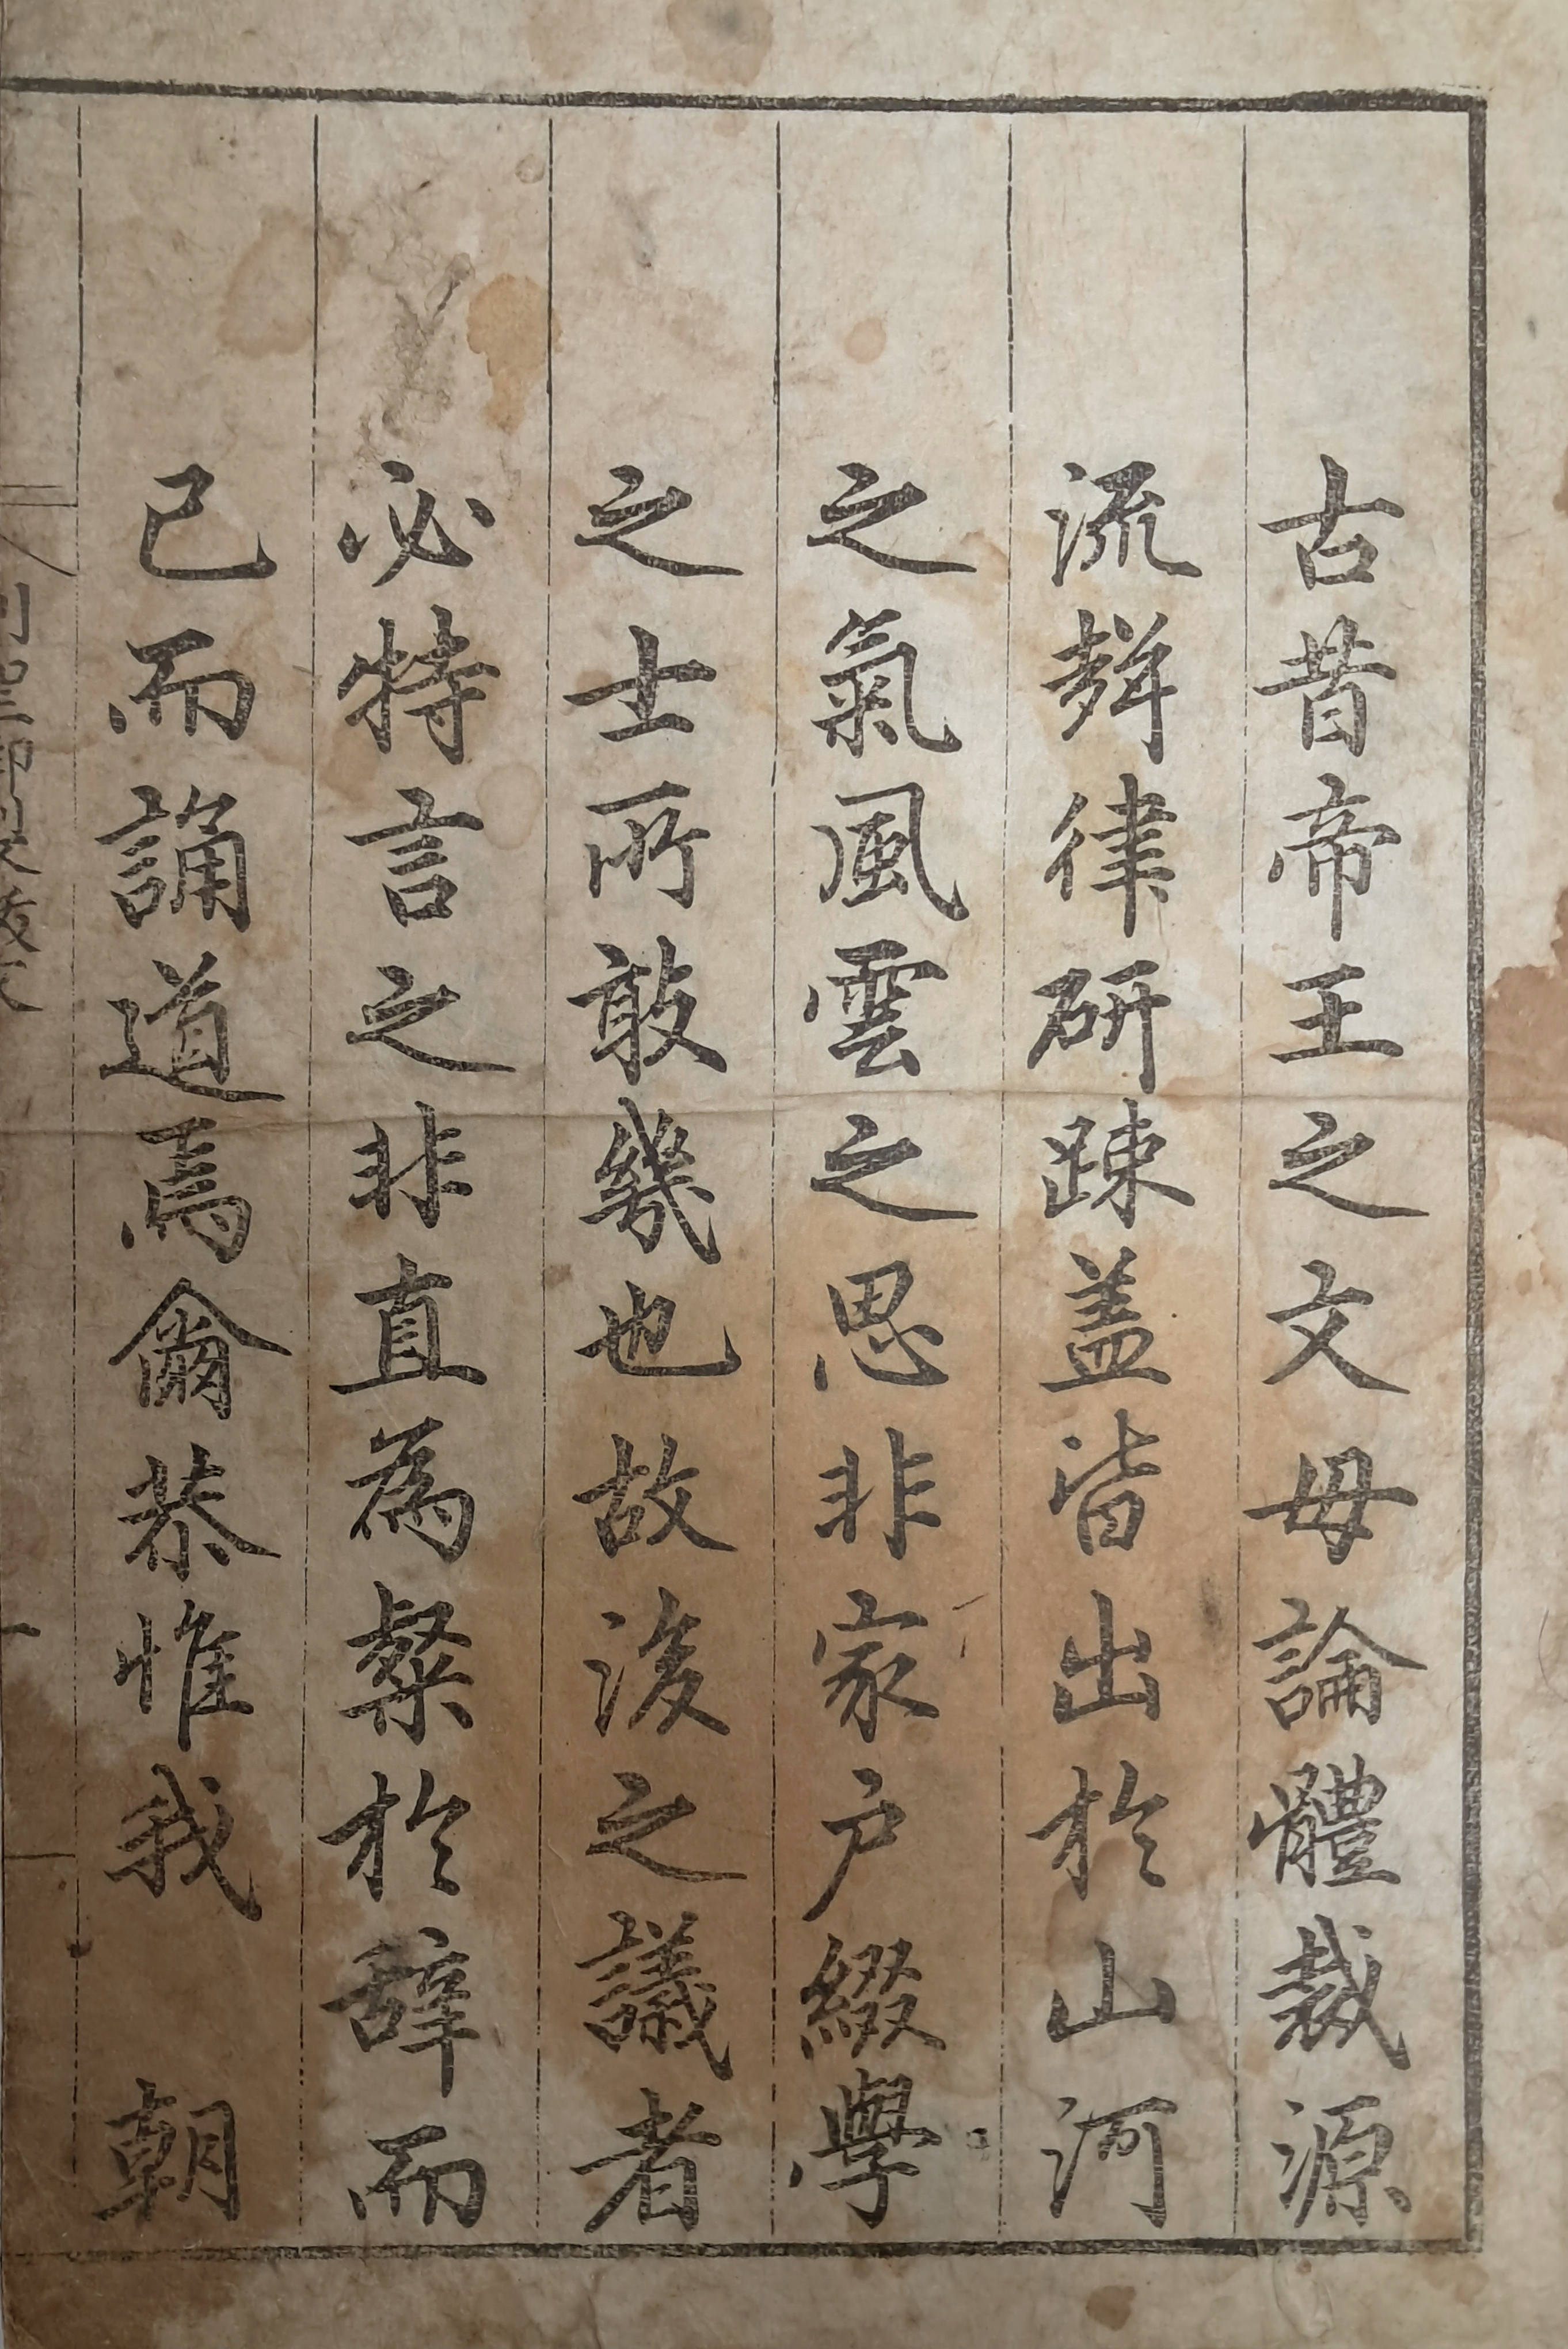 古昔帝王之文毋論體裁源
流聲律研踈盖皆出於山河
之氣風雲之思非家戶綴學
之士所敢幾也故後之議者
必特言之非直為粲於辭而
已而誦道焉爾恭惟我　朝